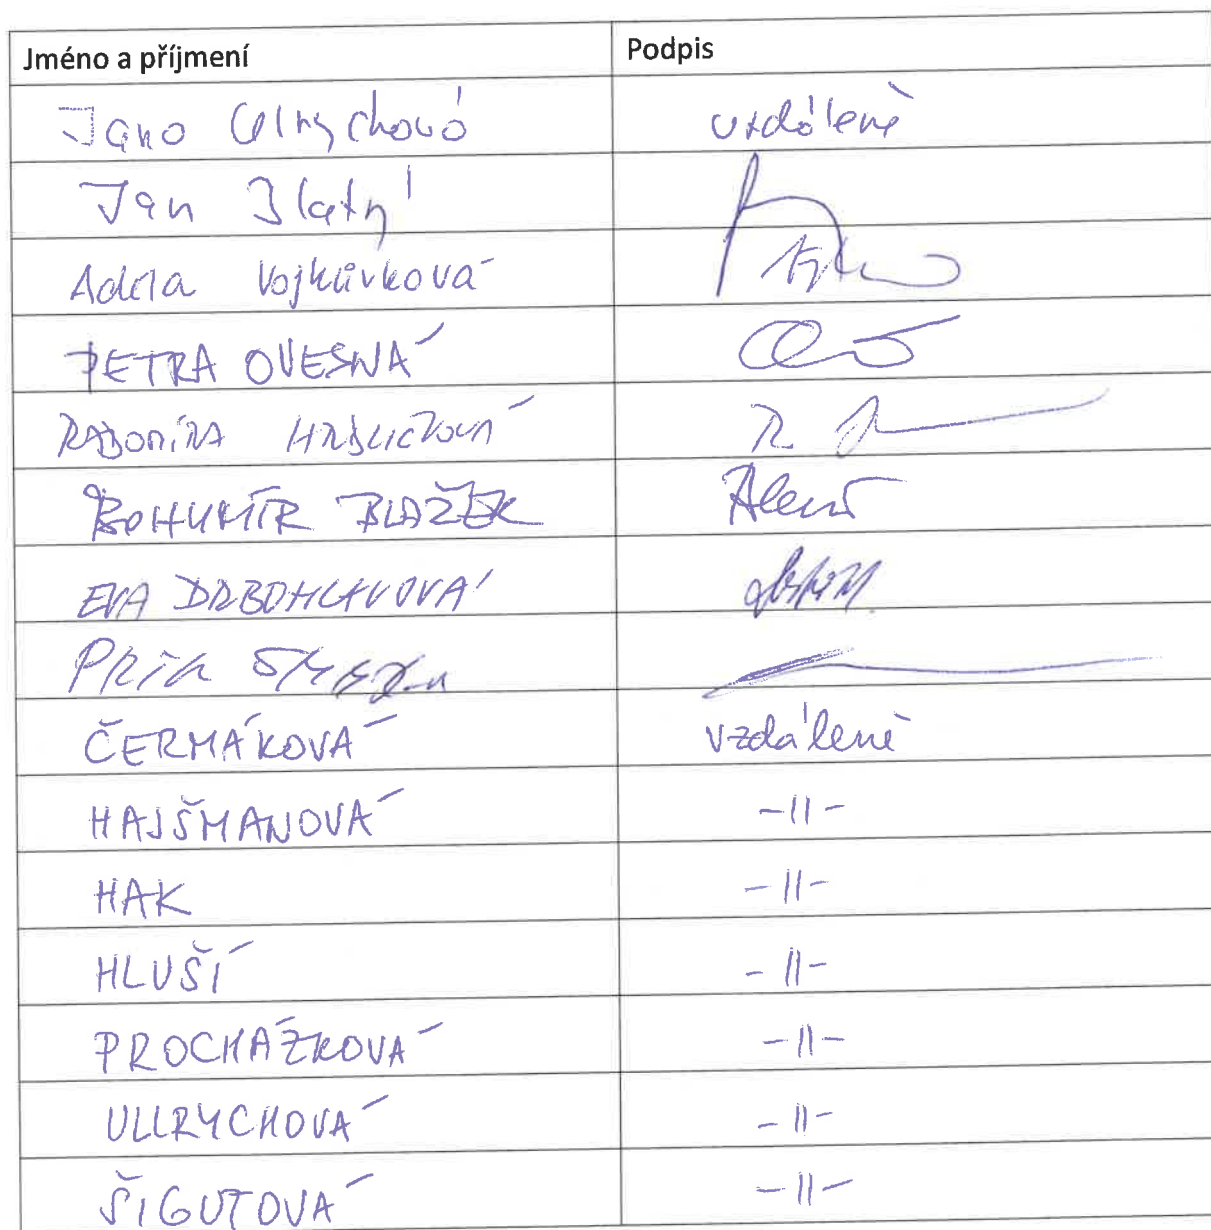 Jméno a příjmení Podpis
vzdáleně
Jan Zlatý
Adéla Vojkůvková
PETRA OVESNÁ
RADOMÍRA
BOHUMÍR BLAŽEK
EVA DRBOHLAVOVÁ
ČERMÁKOVÁ vzdáleně
HAJŠMANOVÁ -II-
HAK -II-
HLUŠÍ -II-
PROCHÁZKOVÁ -II-
ULLRYCHOVÁ -II-
ŠIGUTOVÁ -II-